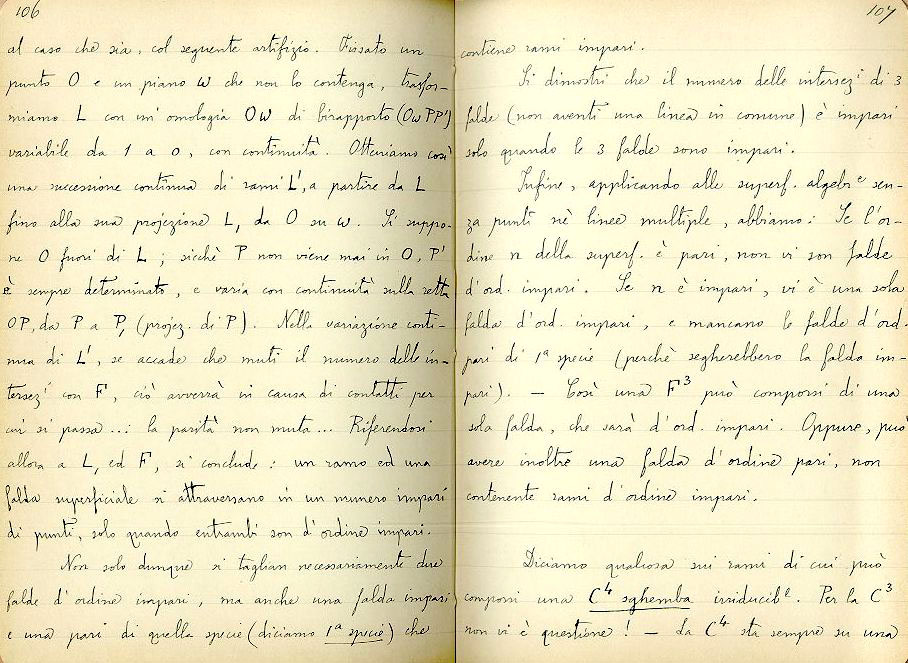 106
al caso che sia, col seguente artifizio. Fissato un
punto O e un piano ω che non lo contenga, trasfor-
miamo L con un'omologia Oω di birapporto (OωPP')
variabile da 1 a 0, con continuità. Otteniamo così
una successione continua di rami L', a partire da L
fino alla sua projezione L, da O su ω. Si suppo-
ne O fuori di L ; sicchè P non viene mai in O, P'
è sempre determinato, e varia con continuità sulla retta
OP, da P a P, (projez. di P). Nella variazione conti-
nua di L', se accade che muti il numero delle in-
tersezi con F, ciò avverrà in causa di contatti per
cui si passa...: la parità non muta... Riferendosi
allora a L, ed F, si conclude: un ramo ed una
falda superficiale si attraversano in un numero impari
di punti, solo quando entrambi son d'ordine impari.
Non solo dunque si taglian necessariamente due
falde d'ordine impari, ma anche una falda impari
e una pari di quella specie (diciamo 1ª specie) che
107
contiene rami impari.
Si dimostri che il numero delle intersezi di 3
falde (non aventi una linea in comune) è impari
solo quando le 3 falde sono impari.
Infine, applicando alle superf. algebre sen-
za punti nè linee multiple, abbiamo: Se l'or-
dine n della superf. è pari, non vi son falde
d'ord. impari. Se n è impari, vi è una sola
falda d'ord. impari, e mancano le falde d'ord.
pari di 1ª specie (perchè segherebbero la falda im-
pari). — Così una F³ può comporsi di una
sola falda, che sarà d'ord. impari. Oppure, può
avere inoltre una falda d'ordine pari, non
contenente rami d'ordine impari.
Diciamo qualcosa sui rami di cui può
comporsi una C⁴ sghemba irriducibe. Per la C³
non vi è questione! — La C⁴ sta sempre su una